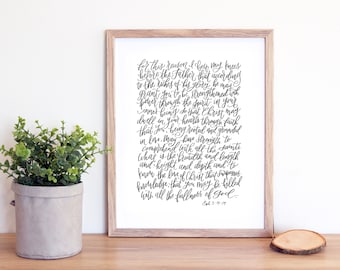 For this reason I bow my knees
before the Father, that according
to the riches of his glory he may
grant you to be strengthened with
power through his spirit in your
inner being, so that Christ may
dwell in your hearts through faith
that you, being rooted and grounded
in love, may have strength to
comprehend with all the saints
what is the breadth and length
and height and depth and to
know the love of Christ that surpasses
knowledge, that you may be filled
with all the fullness of God.
Eph 3:14-19